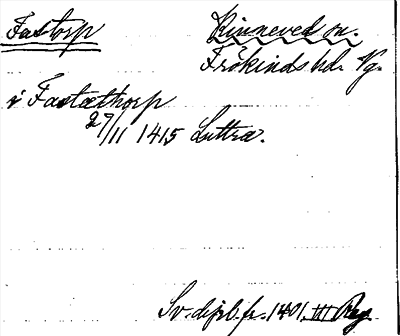 Fastorp
Kinneved sn.
Frökinds hd. Vg.
i Fastæthorp
27/11 1415 Luttra.
Sv. dipl. fr. 1401. III Reg.